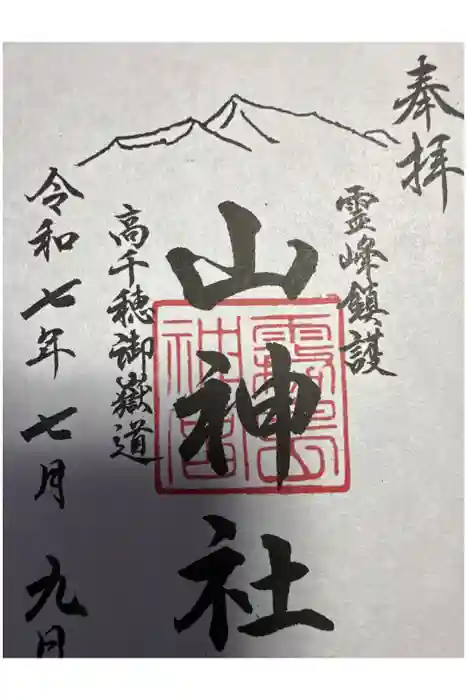 奉拝
霊峰鎮護
山神社
霧島
神宮
高千穂御嶽道
令和七年七月九日